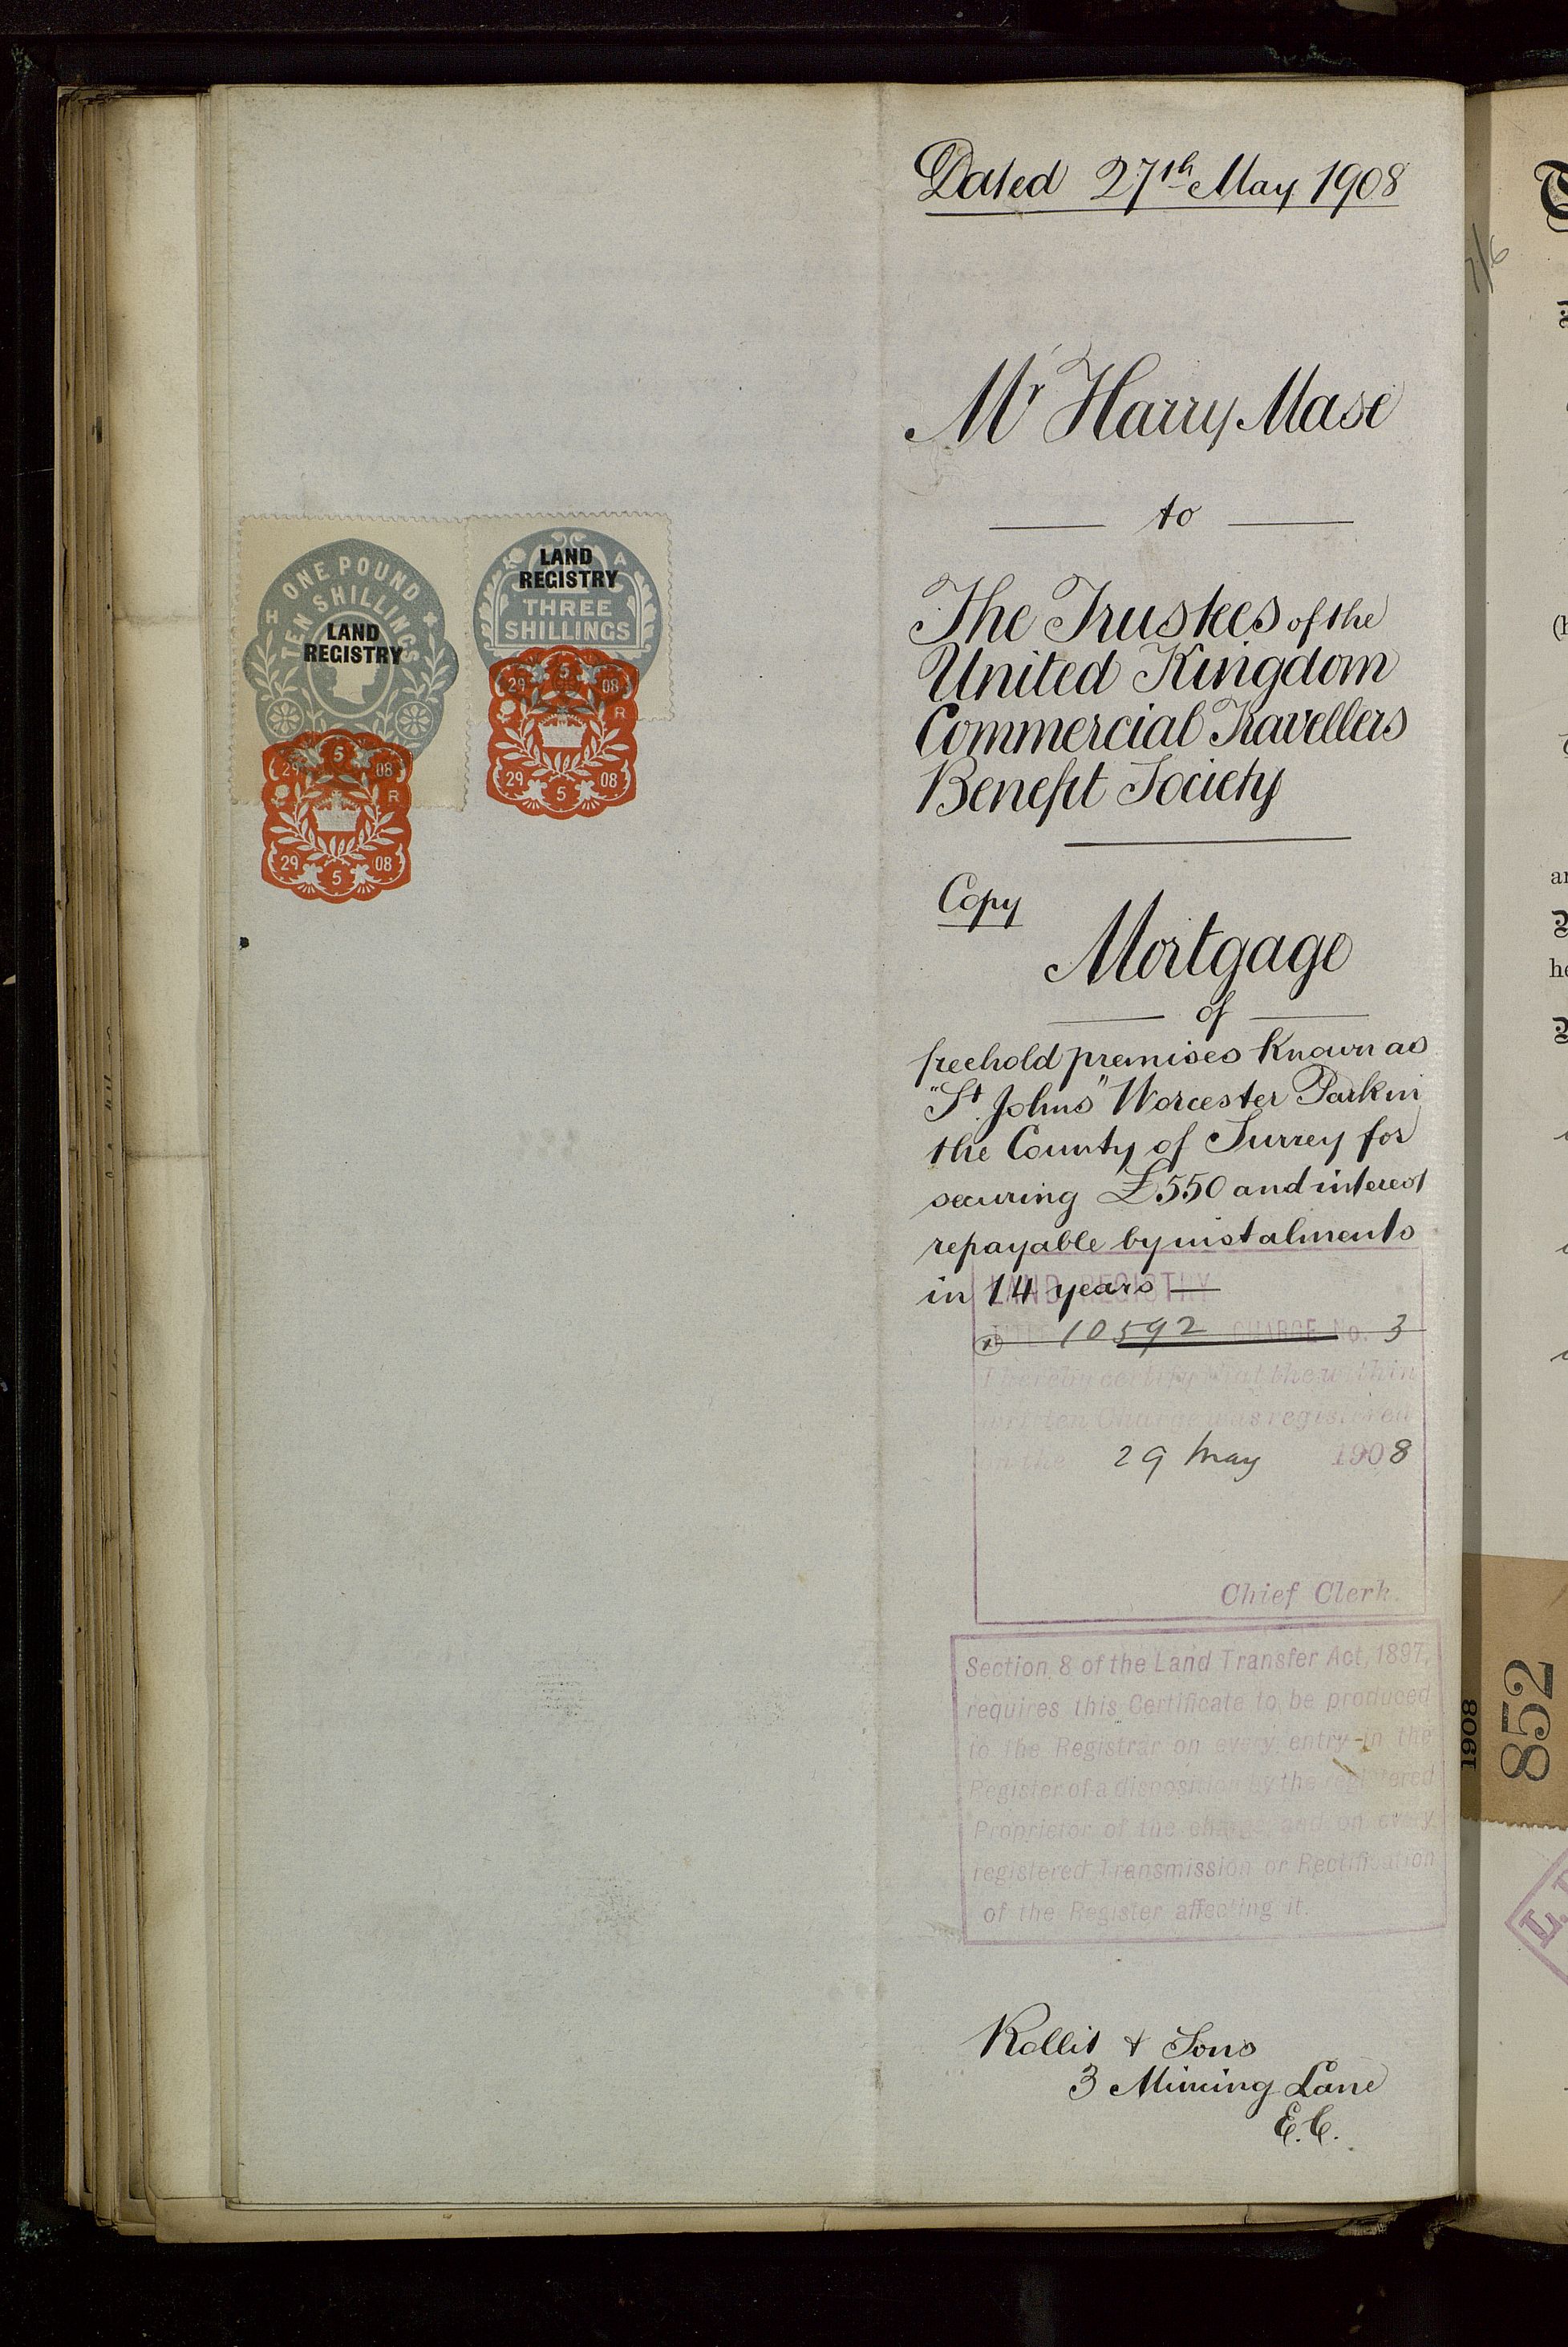 Dated 27th May 1908
Mr Harry Mase
to
The Trustees of the
United Kingdom
Commercial Travellers
Benefit Society
Copy
Mortgage
of
freehold premises known as
"St. Johns" Worcester Park in
the County of Surrey for
securing £550 and interest
repayable by instalments
in 14 years
LAND REGISTRY
10592 CHARGE No. 3
I hereby certify that the within
written Charge was registered
on the 29 May 1908
Chief Clerk.
Section 8 of the Land Transfer Act, 1897,
requires this Certificate to be produced
to the Registrar on every entry in the
Register of a disposition by the registered
Proprietor of the charge and on every
registered Transmission or Rectification
of the Register affecting it.
Rollit & Sons
3 Mincing Lane
E.C.
H ONE POUND
TEN SHILLINGS
LAND
REGISTRY
29 5 08
R
29 5 08
A
LAND
REGISTRY
THREE
SHILLINGS
29 5 08
R
29 5 08
1908
852